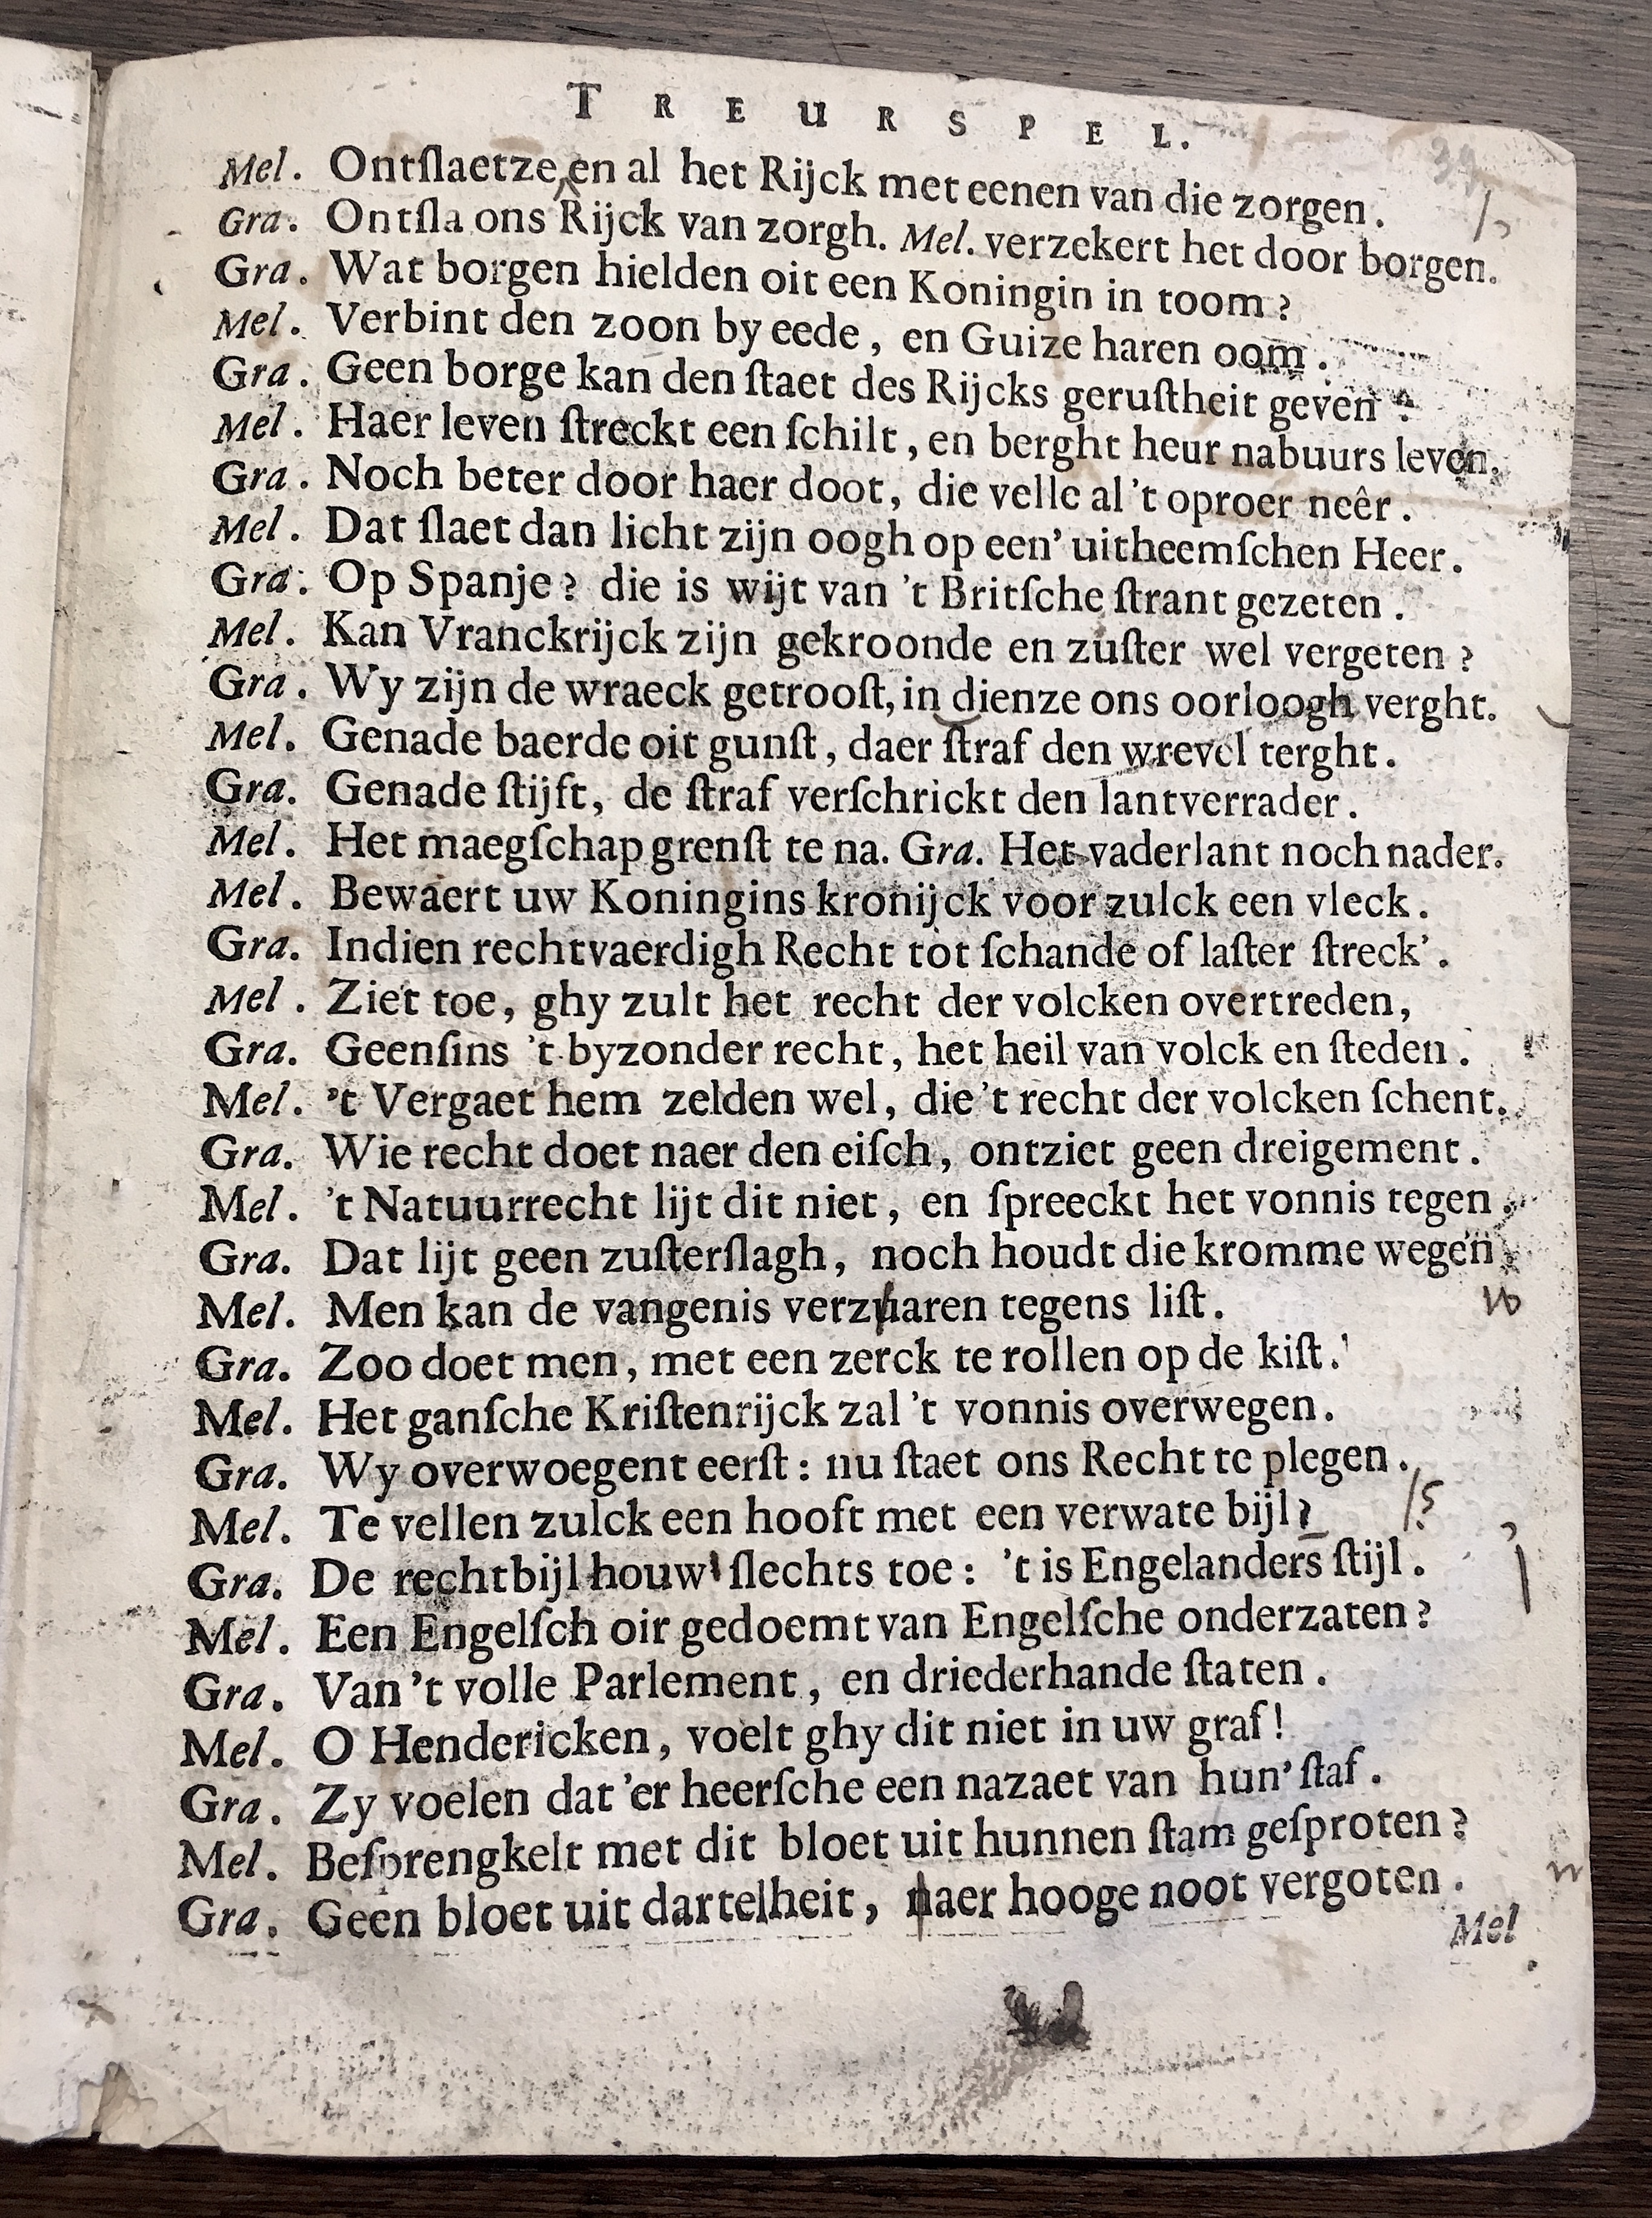 TREURSPEL.
39
Mel. Ontſlaetze en al het Rijck met eenen van die zorgen.
Gra. Ontſla ons Rijck van zorgh. Mel. verzekert het door borgen.
Gra. Wat borgen hielden oit een Koningin in toom?
Mel. Verbint den zoon by eede, en Guize haren oom.
Gra. Geen borge kan den ſtaet des Rijcks geruſtheit geven?
Mel. Haer leven ſtreckt een ſchilt, en berght heur nabuurs leven.
Gra. Noch beter door haer doot, die velle al 't oproer neêr.
Mel. Dat ſlaet dan licht zijn oogh op een' uitheemſchen Heer.
Gra. Op Spanje? die is wijt van 't Britſche ſtrant gezeten.
Mel. Kan Vranckrijck zijn gekroonde en zuſter wel vergeten?
Gra. Wy zijn de wraeck getrooſt, in dienze ons oorloogh verght.
Mel. Genade baerde oit gunſt, daer ſtraf den wrevel terght.
Gra. Genade ſtijft, de ſtraf verſchrickt den lantverrader.
Mel. Het maegſchap grenſt te na. Gra. Het vaderlant noch nader.
Mel. Bewaert uw Koningins kronijck voor zulck een vleck.
Gra. Indien rechtvaerdigh Recht tot ſchande of laſter ſtreck'.
Mel. Ziet toe, ghy zult het recht der volcken overtreden,
Gra. Geenſins 't byzonder recht, het heil van volck en ſteden.
Mel. 't Vergaet hem zelden wel, die 't recht der volcken ſchent.
Gra. Wie recht doet naer den eiſch, ontziet geen dreigement.
Mel. 't Natuurrecht lijt dit niet, en ſpreeckt het vonnis tegen.
Gra. Dat lijt geen zuſterſlagh, noch houdt die kromme wegen.
Mel. Men kan de vangenis verzuaren tegens liſt. w
Gra. Zoo doet men, met een zerck te rollen op de kiſt.
Mel. Het ganſche Kriſtenrijck zal 't vonnis overwegen.
Gra. Wy overwoegent eerſt: nu ſtaet ons Recht te plegen.
Mel. Te vellen zulck een hooft met een verwate bijl?
Gra. De rechtbijl houw' ſlechts toe: 't is Engelanders ſtijl.
Mel. Een Engelſch oir gedoemt van Engelſche onderzaten?
Gra. Van 't volle Parlement, en driederhande ſtaten.
Mel. O Hendericken, voelt ghy dit niet in uw graf!
Gra. Zy voelen dat 'er heerſche een nazaet van hun' ſtaf.
Mel. Beſprengkelt met dit bloet uit hunnen ſtam geſproten?
Gra. Geen bloet uit dartelheit, naer hooge noot vergoten. m
Mel